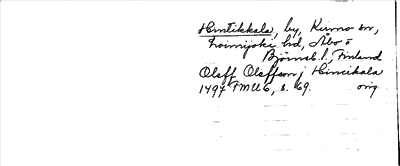 Hintikkala, by, Kiumo sn,
Loimijoki hd, Åbo o
Björneb. l., Finland
Olaff Olaffson j Hinikala
1497 FMU 6, s. 69. orig